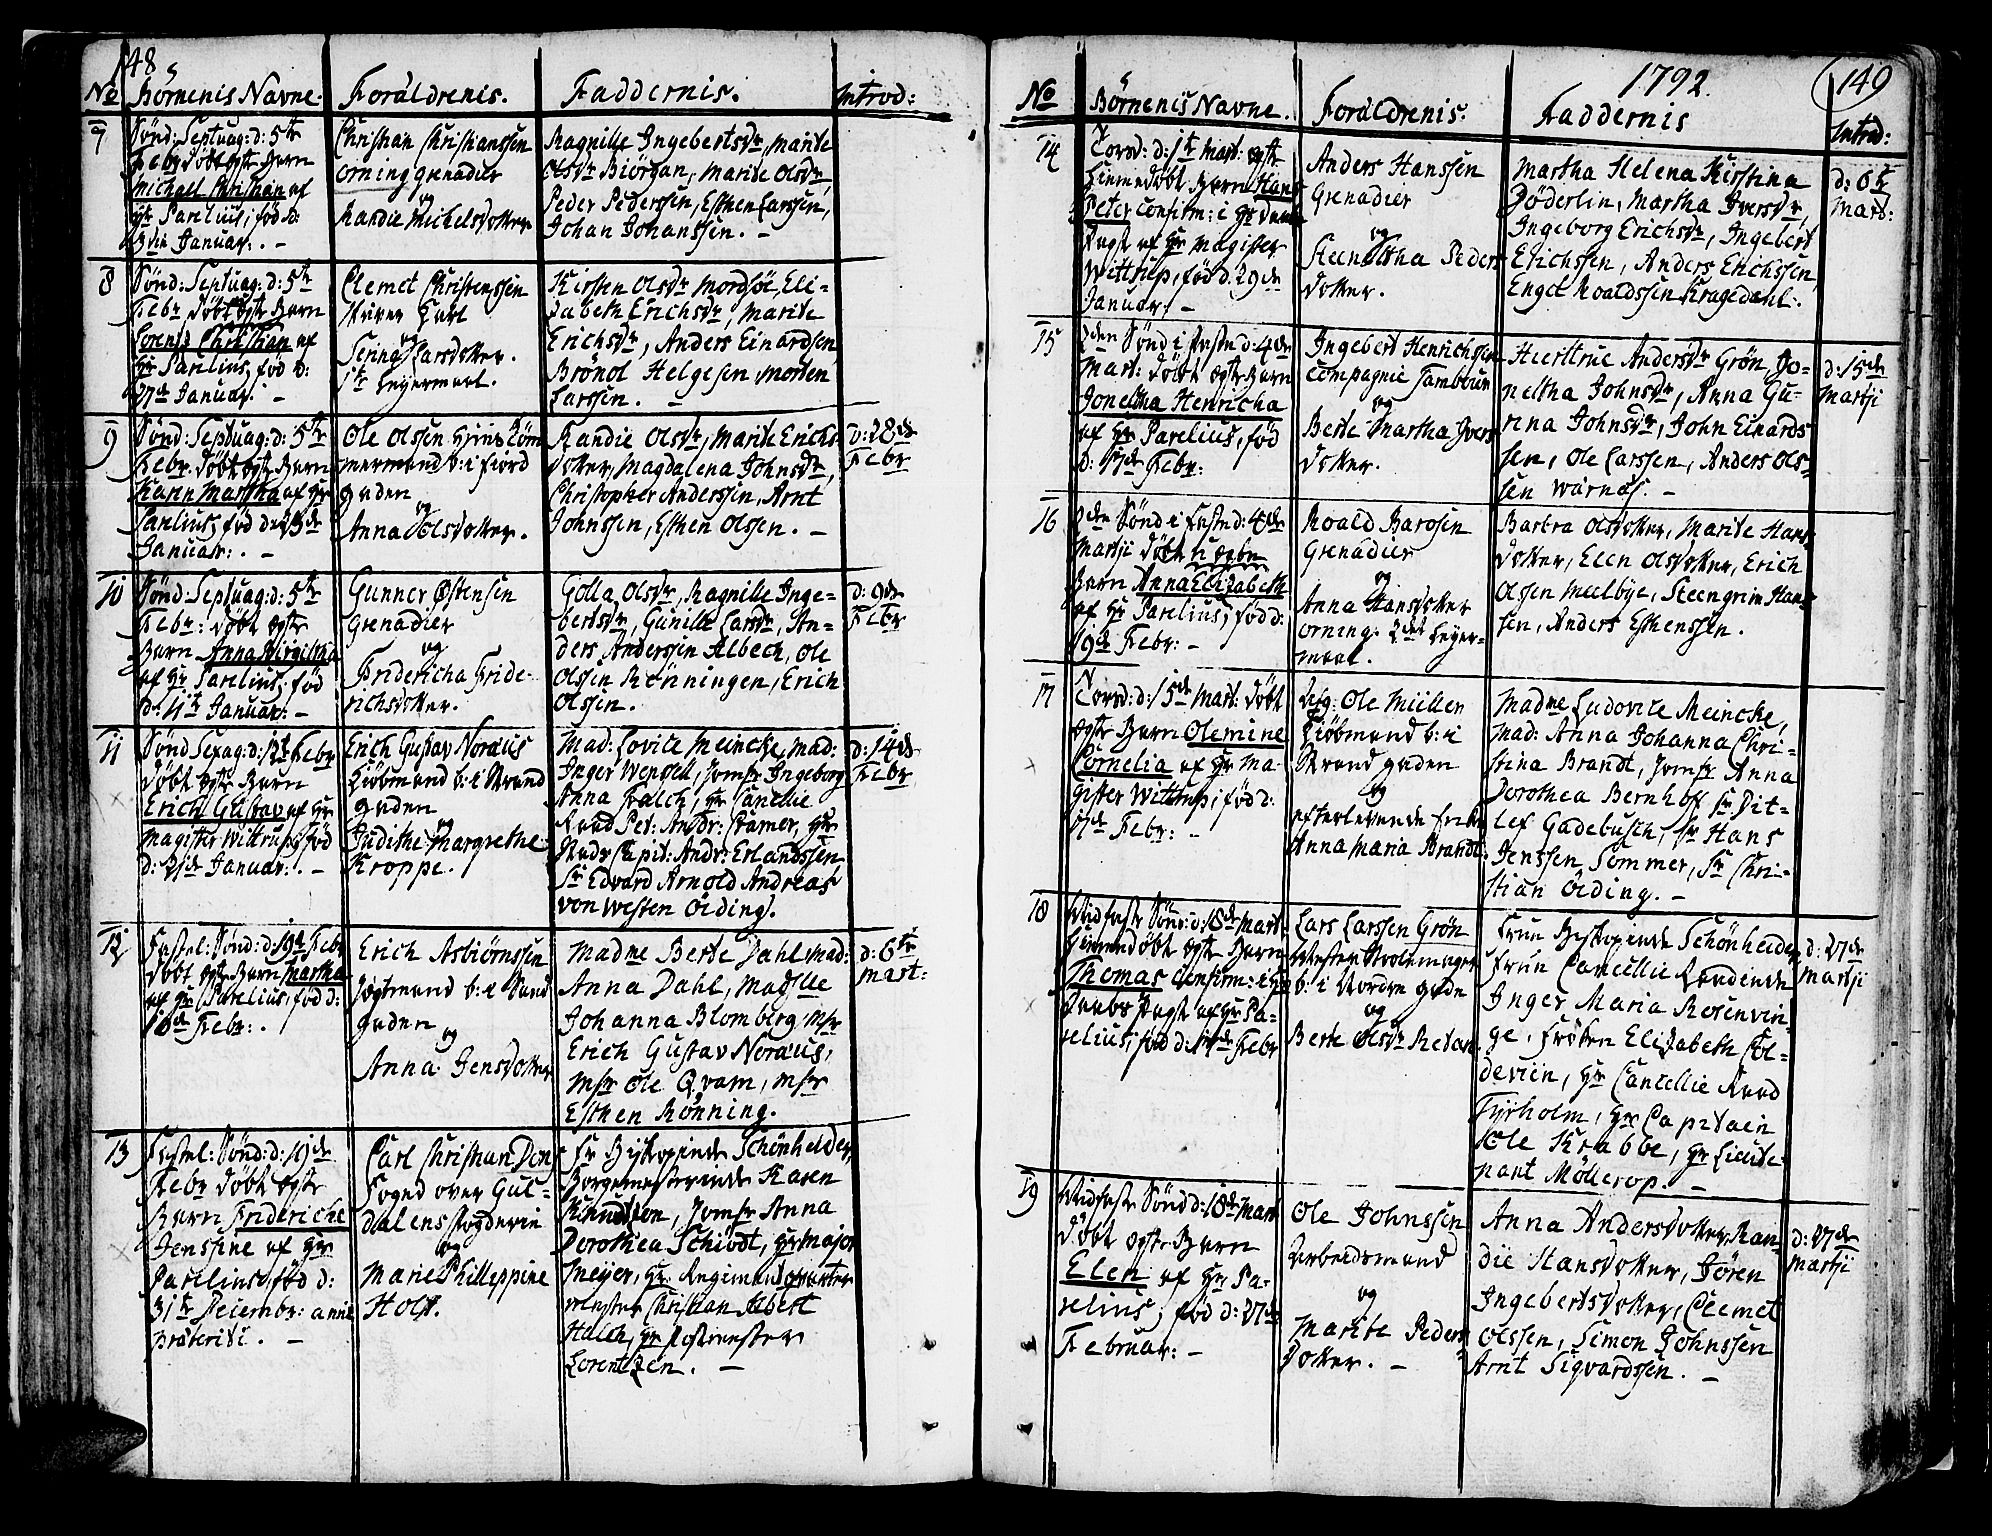 148
No Börnenis Navne. Foraldrenis. Faddernis. Introd:
7
Sönd: Septuag: d: 5te
Febr döbt ægte Barn
Michael Christian af
Hr Parelius, föd d:
Januar: . –
Christian Christianssen
orning grenadier
og
Randie Michelsdotter
Ragnille Ingebertsdr, Marite
Olsdr Biörgan, Marite Olsdr
Peder Pederssen, Esthen Larssen,
Johan Johanssen. –
8
Sönd: Septuag: d: 5te
Febr döbt ægte Barn
Lorents Christian af
Hr Parelius, föd d:
27de Januar. –
Clemet Christenssen
og
Sering Larsdotter.
1te Leyermaal.
Kirsten Olsdr Mordföl, Eli-
sabeth Erichsdr, Marite
Erichsdr, Anders Einardsen
Brönol Helgesen, Morten
Larssen. –
9
Sönd: Septuag: d: 5te
Febr. döbt ægte Barn
Karen Martha af Hr
Parelius, föd d: 23de
Januar: . –
Ole Olssen Töm-
mermand b: i fiord
gaden
og
Anna Olsdotter.
Randie Olsdr, Marite Erichs
dotter, Magdalena Johnsdr,
Christopher Anderssen, Arnt
Johnssen, Esthen Olssen. –
d: 28de
Febr
10
Sönd: Septuag: d: 5te
Febr: döbt ægte
Barn Anna Birgitha
af Hr Parelius, föd
d: 11te Januar: –
Gunner Östensen
Grenadier
og
Fridericha Fride-
richsdotter.
Golla Olsdr, Ragnille Inge-
bertsdr, Gunille Larsdr, An-
ders Anderssen Albech, Ole
Olssen Rönningen, Erich
Olssen.
d: 9de
Febr
11
Sönd Sexag: d: 12te Febr
döbt ægte Barn
Erich Gustav af Hr
Magister Wittrup, föd
d: 21de Januar: . –
Erich Gustav Noræus
Kiöbmand b: i Strand
gaden
og
Judithe Margrethe
Kroppe.
Mad: Lovise Meincke, Mad:
Inger Wensell, Jomfr Ingeborg
Anna Falch, Hr Cancellie
Raad Pet: Andr: Stamer, Hr
Stads Capit: Andr: Erlandssen
Sr Edvard Arnold Andreas
von Westen Öiding.
d: 14de
Febr
12
Fastel: Sönd: d: 19de Febr
döbt ægte Barn Martha
af Hr Parelius, föd d:
10de Febr: .
Erich Asbiörnssen
Jagtmand b: i Sand
gaden
og
Anna Jensdotter
Madme Berte Dahl, Mad:
Anna Dahl, Madslle
Johanna Blomberg, Msr
Erich Gustav Noræus,
Msr Ole Qvam, Msr
Esthen Rönning.
d: 6te
Mart:
13
Fastel: Sönd: d: 19de
Febr döbt ægte
Barn Friderich
Jensine af Hr
Parelius, föd d:
31te Decembr: anni
præteriti. –
Carl Christian Dons
Foged over Gul-
dalens Fogderie
og
Marie Philleppine
Holst.
Fr Biskopinde Schönheider,
Borgemesterinde Karen
Knudtzon, Jomfr Anna
Dorothea Schiödt, Hr Major
Meyer, Hr Regiments qvarter
mester Christian Albert
Halch, Hr Postmester
Lorentzen. –
1792. 149
No Börnenis Navne. Foraldrenis. Faddernis Introd:
14
Torsd: d: 1te Mart: ægte
Hiemmedöbt Barn Hans
Peter confirm: i
af Hr Magister
Wittrup, föd d. 29de
Januar: –
Anders Hanssen
Grenadier
og
Steentha Peders
dotter.
Martha Helena Kirstina
Döderlin, Martha Iversdr,
Ingeborg Erichsdr, Ingebert
Erichssen, Anders Erichssen
Engel Roaldssen Kragedahl.
d: 6te
Mart:
15
2den Sönd i Faste d: 4de
Mart: döbt ægte Barn
Joneltha Henricha
af Hr Parelius, föd
d: 17de Febr:
Ingebert Henrichssen
Compagnie Tambour
og
Berte Martha Ivers
dotter.
Hiertrue Andersdr Grön, Jo-
neltha Johnsdr, Anna Gu-
rina Johnsdr, John Einards
sen, Ole Larssen, Anders Ols-
sen Wärnæs. –
d: 15de
Martji
16
2den Sönd i Faste d: 4de
Martji döbt u ægte
Barn Anna Elizabeth
af Hr Parelius, föd d:
19de Febr: –
Roald Barosen
Grenadier
og
Anna Hansdotter
orning. 2det Leyer-
maal.
Barbra Olsdotter, Marite Hans
dotter, Elen Olsdotter, Erich
Olssen Meelbye, Steengrim Hans
sen, Anders Esthenssen.
17
Torsd: d: 15de Mart: döbt
ægte Barn Olemine
Cornelia af Hr Ma-
gister Wittrup, föd d:
17de Febr: –
Ole Müller
Kiöbmand b: i
Strand gaden
og
efterlevende Enke
Anna Maria Brandt.
Madme Ludovice Meincke,
Mad: Anna Johanna Chri-
stina Brandt, Jomfr Anna
Dorothea Bernhoff Sr Dit-
lef Gadebusch, Sr Hans
Jenssen Sommer, Sr Chri-
stian Öiding. –
18
Midfaste Sönd: d: 18de Mart:
Hiemmedöbt ægte Barn
Thomas confirm: i
af Hr Pa-
relius, föd d: 17de Febr
Lars Larssen Grön
b: i Nordre gade
og
Berte Olsdr Retan.
Frue Biskopinde Schönheider,
Frue Cancellie Raadinde
Inger Maria Rosenvin-
ge, Fröken Elizabeth Col-
devien, Hr Cancellie Raad
Fyrholm, Hr Capitain
Ole Krabbe, Hr Lieute-
nant Möllerop. –
d: 27de
Martji
19
Midfaste Sönd d: 18de Mart
döbt ægte Barn
Elen af Hr Pa-
relius, föd d: 27de
Februar: –
Ole Johnssen
Arbeidsmand
og
Marite Peders
dotter. –
Anna Andersdotter, Ran-
die Hansdotter, Jören
Ingebertsdotter, Clemet
Olssen, Simon Johnssen
Arnt Sigvardssen. –
d: 27de
Martji